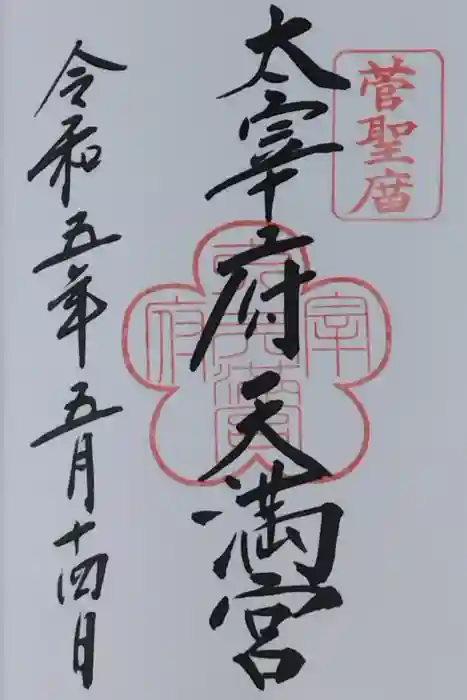 菅聖庿
太宰府天満宮
令和五年五月十四日
宰
府
滿